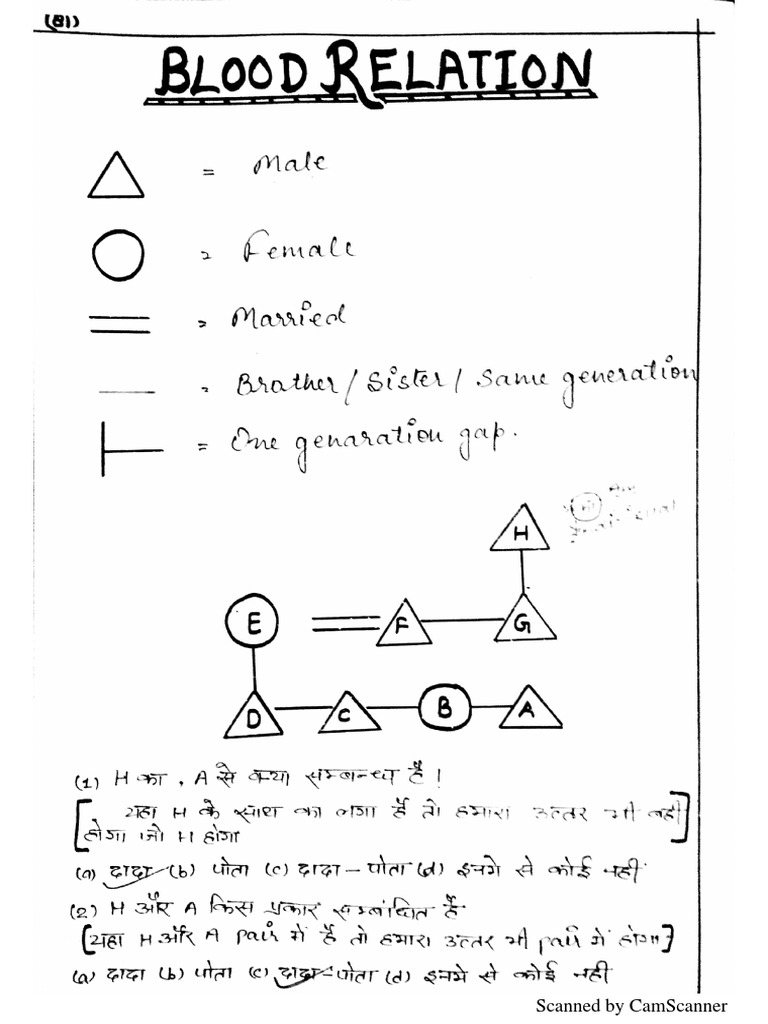 (81)
BLOOD RELATION
= Male
= Female
= Married
= Brather / Sister / Same generation
= One genaration gap.
H
E F G
D C B A
(1) H का , A से क्या सम्बन्ध है !
[ यहा H के साथ का लगा है तो हमारा उत्तर भी वही
होगा जो H होगा ]
(a) दादा (b) पोता (c) दादा – पोता (d) इनमे से कोई नहीं
(2) H और A किस प्रकार सम्बंधित है
[यहा H और A pair में है तो हमारा उत्तर भी pair में होगा]
(a) दादा (b) पोता (c) दादा-पोता (d) इनमे से कोई नही
Scanned by CamScanner